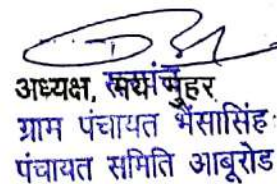 अध्यक्ष, मय मुहर
ग्राम पंचायत भैंसासिंह
पंचायत समिति आबूरोड